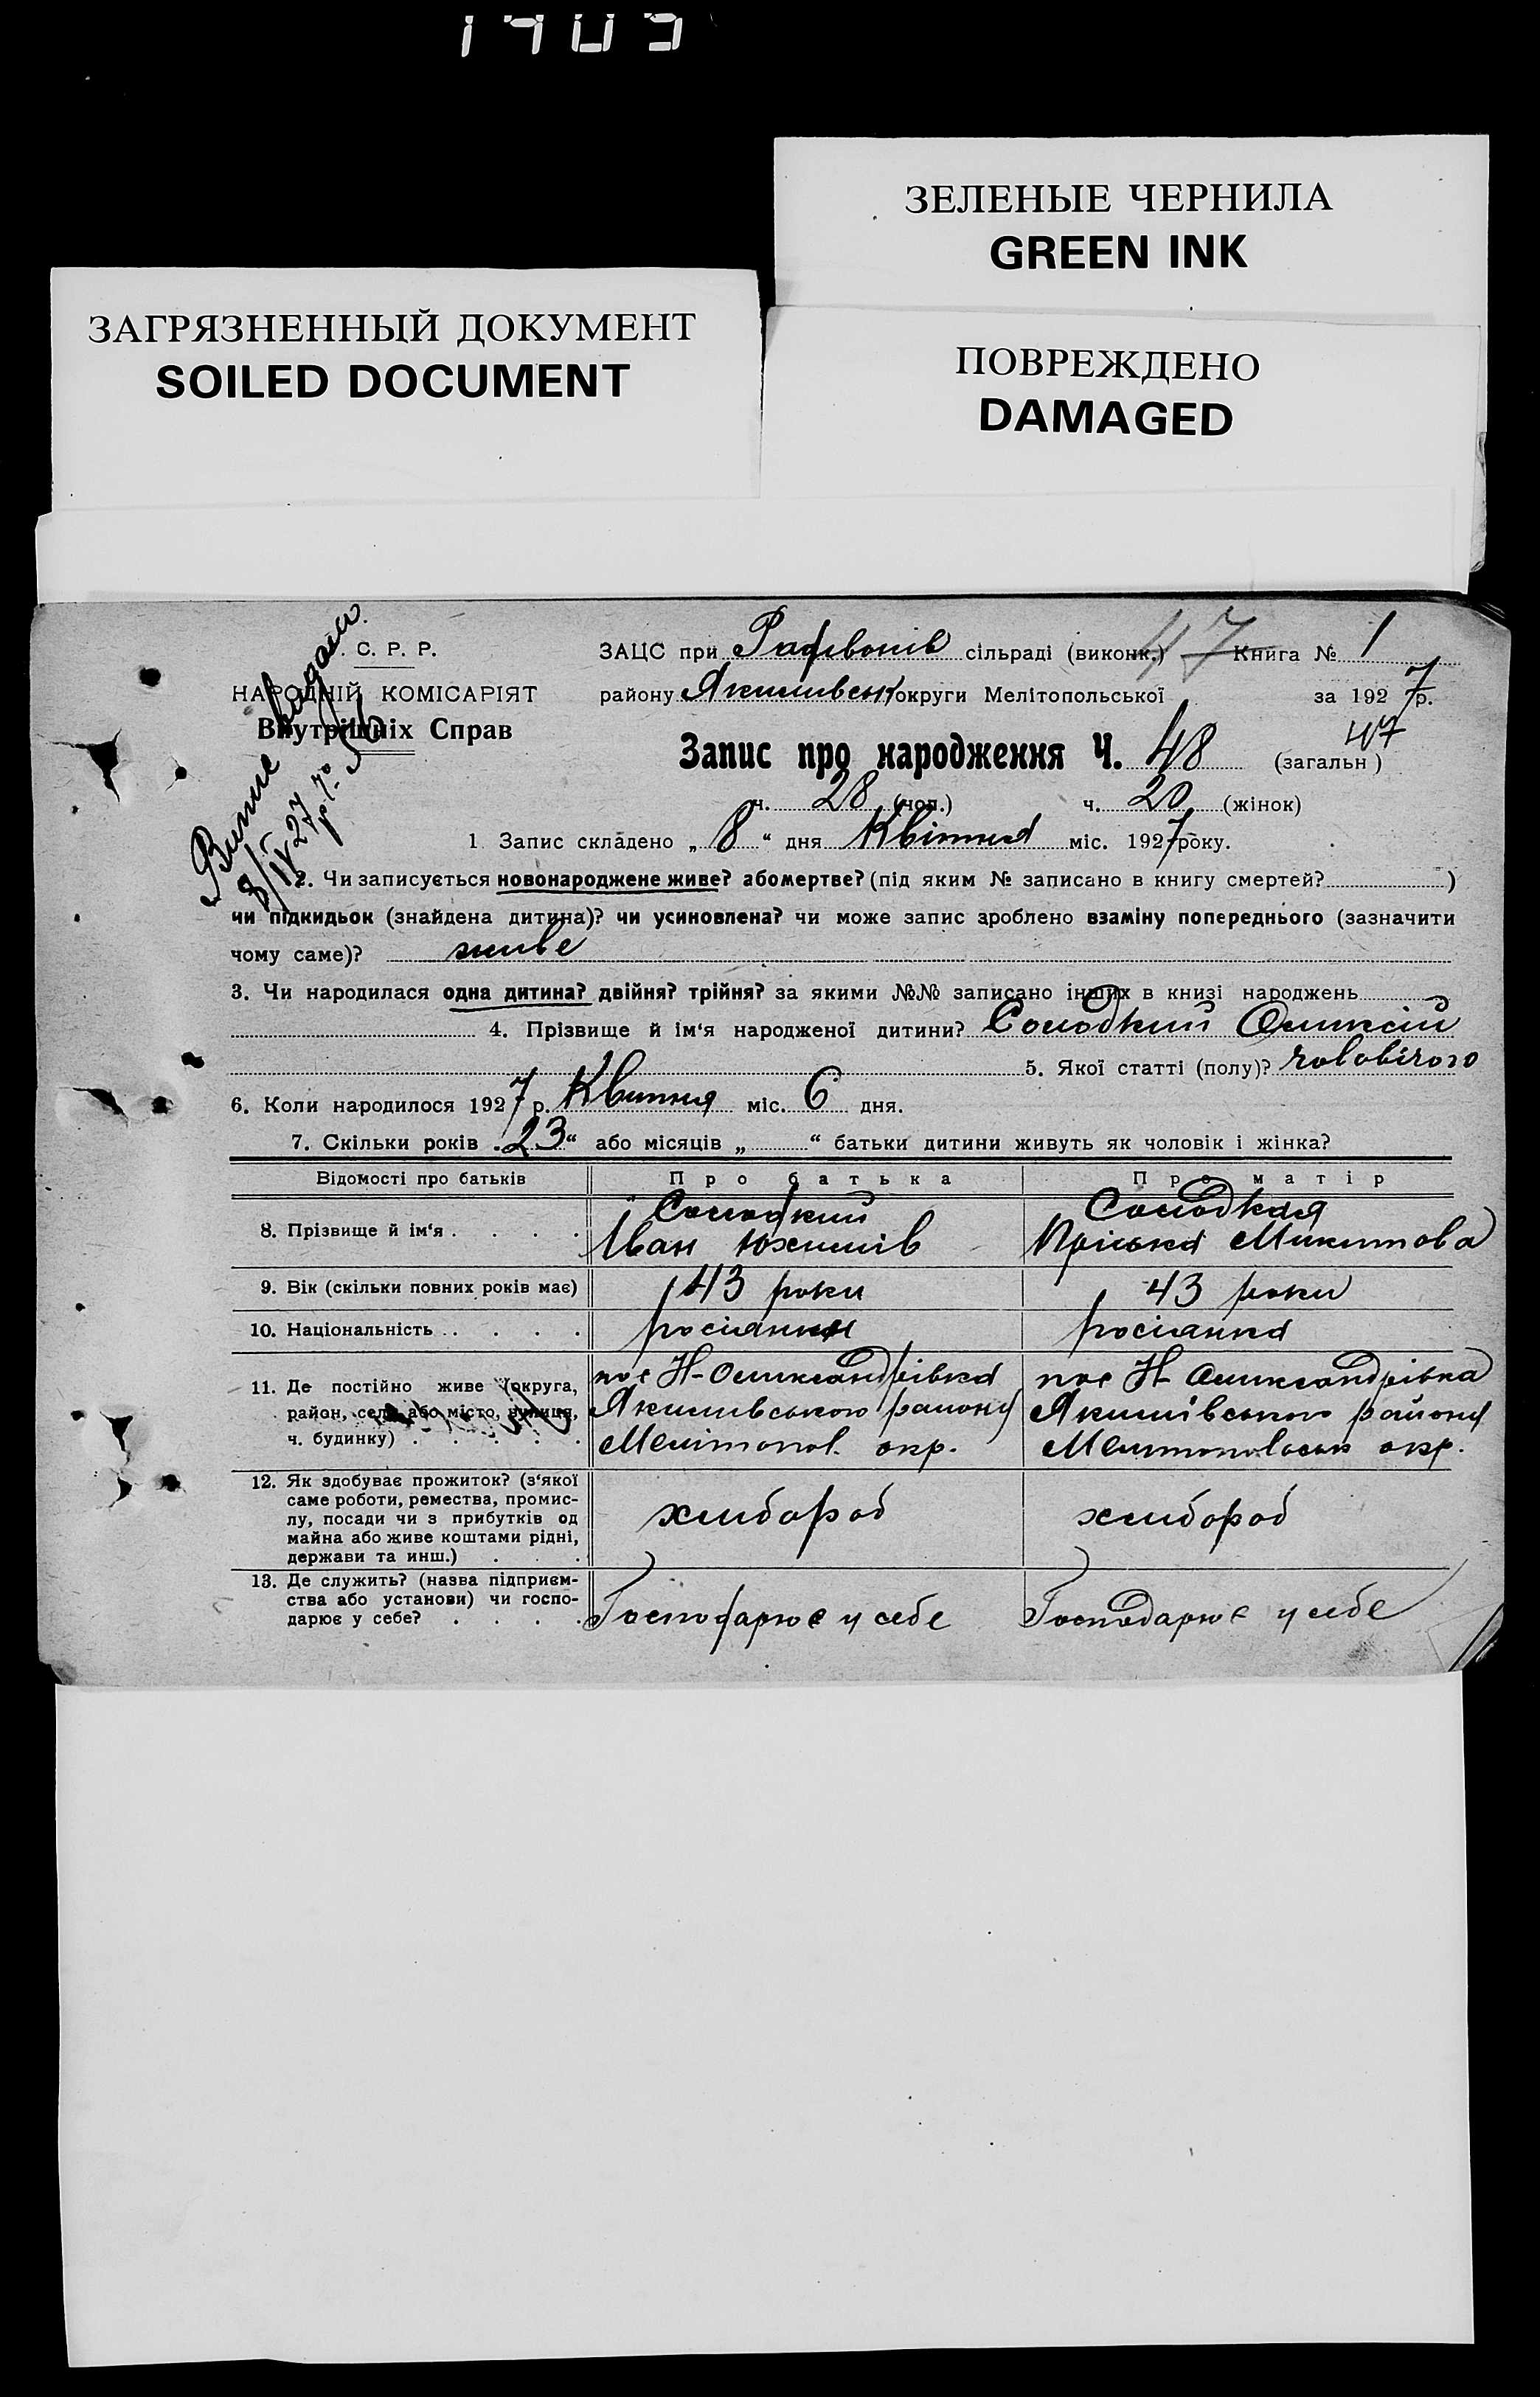 1905
ЗЕЛЕНЫЕ ЧЕРНИЛА
GREEN INK
ЗАГРЯЗНЕННЫЙ ДОКУМЕНТ
SOILED DOCUMENT
ПОВРЕЖДЕНО
DAMAGED
. С. Р. Р.
НАРОДНІЙ КОМІСАРІЯТ
Внутрішніх Справ
8/IV 27
ЗАЦС при сільраді (виконк.) 47 Книга № 1
району Якимивськ округи Мелітопольської за 1927 р.
47
Запис про народження Ч. 48 (загальн)
ч. 28 (чол.) ч. 20 (жінок)
1 Запис складено „ 8 “ дня Квітня міс. 1927 року.
2. Чи записується новонароджене живе? або мертве? (під яким № записано в книгу смертей? )
чи підкидьок (знайдена дитина)? чи усиновлена? чи може запис зроблено взаміну попереднього (зазначити
чому саме)? живе
3. Чи народилася одна дитина? двійня? трійня? за якими №№ записано інших в книзі народжень
4. Прізвище й ім‘я народженої дитини? Солодкий Оликсій
5. Якої статті (полу)? чоловічого
6. Коли народилося 1927 р. Квитня міс. 6 дня.
7. Скільки років „23“ або місяців „ “ батьки дитини живуть як чоловік і жінка?
Відомості про батьків Про батька Про матір
8. Прізвище й ім‘я . . . . Солодкий Іван Юхимів Солодкая Пріська Микитова
9. Вік (скільки повних років має) 43 роки 43 роки
10. Національність . . . . . росіянин росіянка
11. Де постійно живе (округа,
район, село або місто, вулиця,
ч. будинку) . . . . .
пос Н-Олександрівка
Якимивського району
Мелітопол. окр.
пос Н-Олександрівка
Якимівського району
Мелитопольськ окр.
12. Як здобуває прожиток? (з‘якої
саме роботи, ремества, промис-
лу, посади чи з прибутків од
майна або живе коштами рідні,
держави та инш.) . . .
хлибороб хлибороб
13. Де служить? (назва підприєм-
ства або установи) чи госпо-
дарює у себе? . . . .
Господарює у себе Господарює у себе